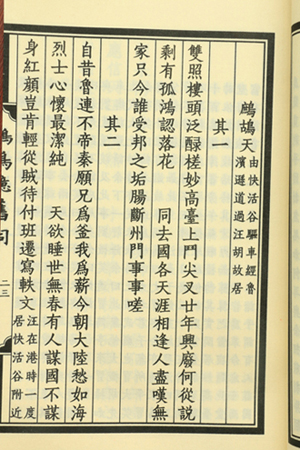 鷓鴣天 由快活谷驅車經魯
濱遜道過汪胡故居
其一
雙照樓頭泛醁槎妙高臺上鬥尖叉廿年興廢何從說
剩有孤鴻認落花　同去國各天涯相逢人盡嘆無
家只今誰受邦之垢腸斷州門事事嗟
其二
自昔魯連不帝秦願兄爲釜我爲薪今朝大陸愁如海
烈士心懷最潔純　天欲睡世無春有人謀國不謀
身紅顏豈肯輕從賊待付班遷寫軼文 汪在港時一度
居快活谷附近
二三